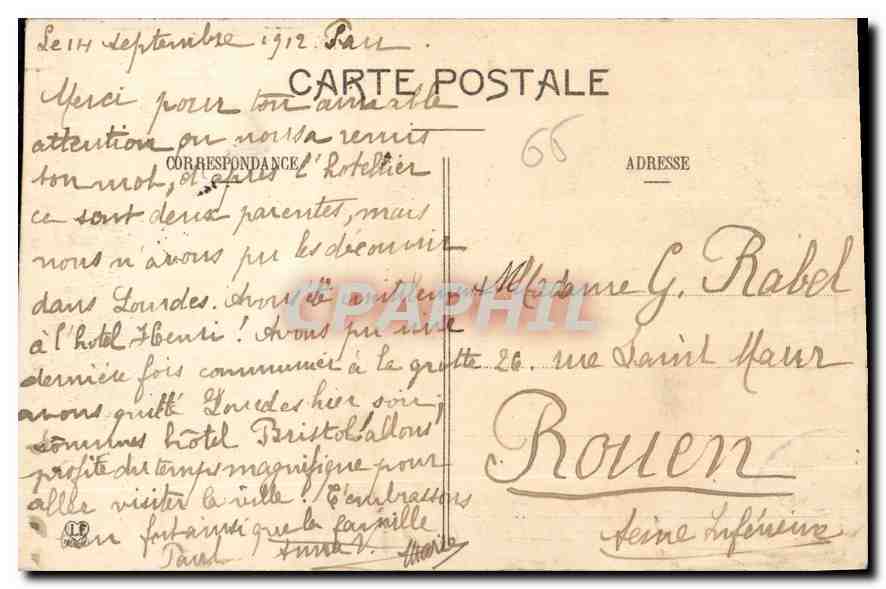 Le 14 septembre 1912 Pau.
CARTE POSTALE
Merci pour ton aimable
attention on nous a remis
CORRESPONDANCE
ton mot, d'après l'hotellier
ce sont deux parentes, mais
nous n'avons pu les découvrir
dans Lourdes. Avons été
à l'hotel Henri! Avons pu une
dernière fois communier à la grotte
avons quitté Lourdes hier soir,
sommes hôtel Bristol allons
profité du temps magnifique pour
aller visiter la ville! T'embrassons
fort ainsi que la famille
Paul Anna V. Marie
66
ADRESSE
Madame G. Rabel
26. rue Saint Maur
Rouen
Seine Inférieure
CPAPHIL